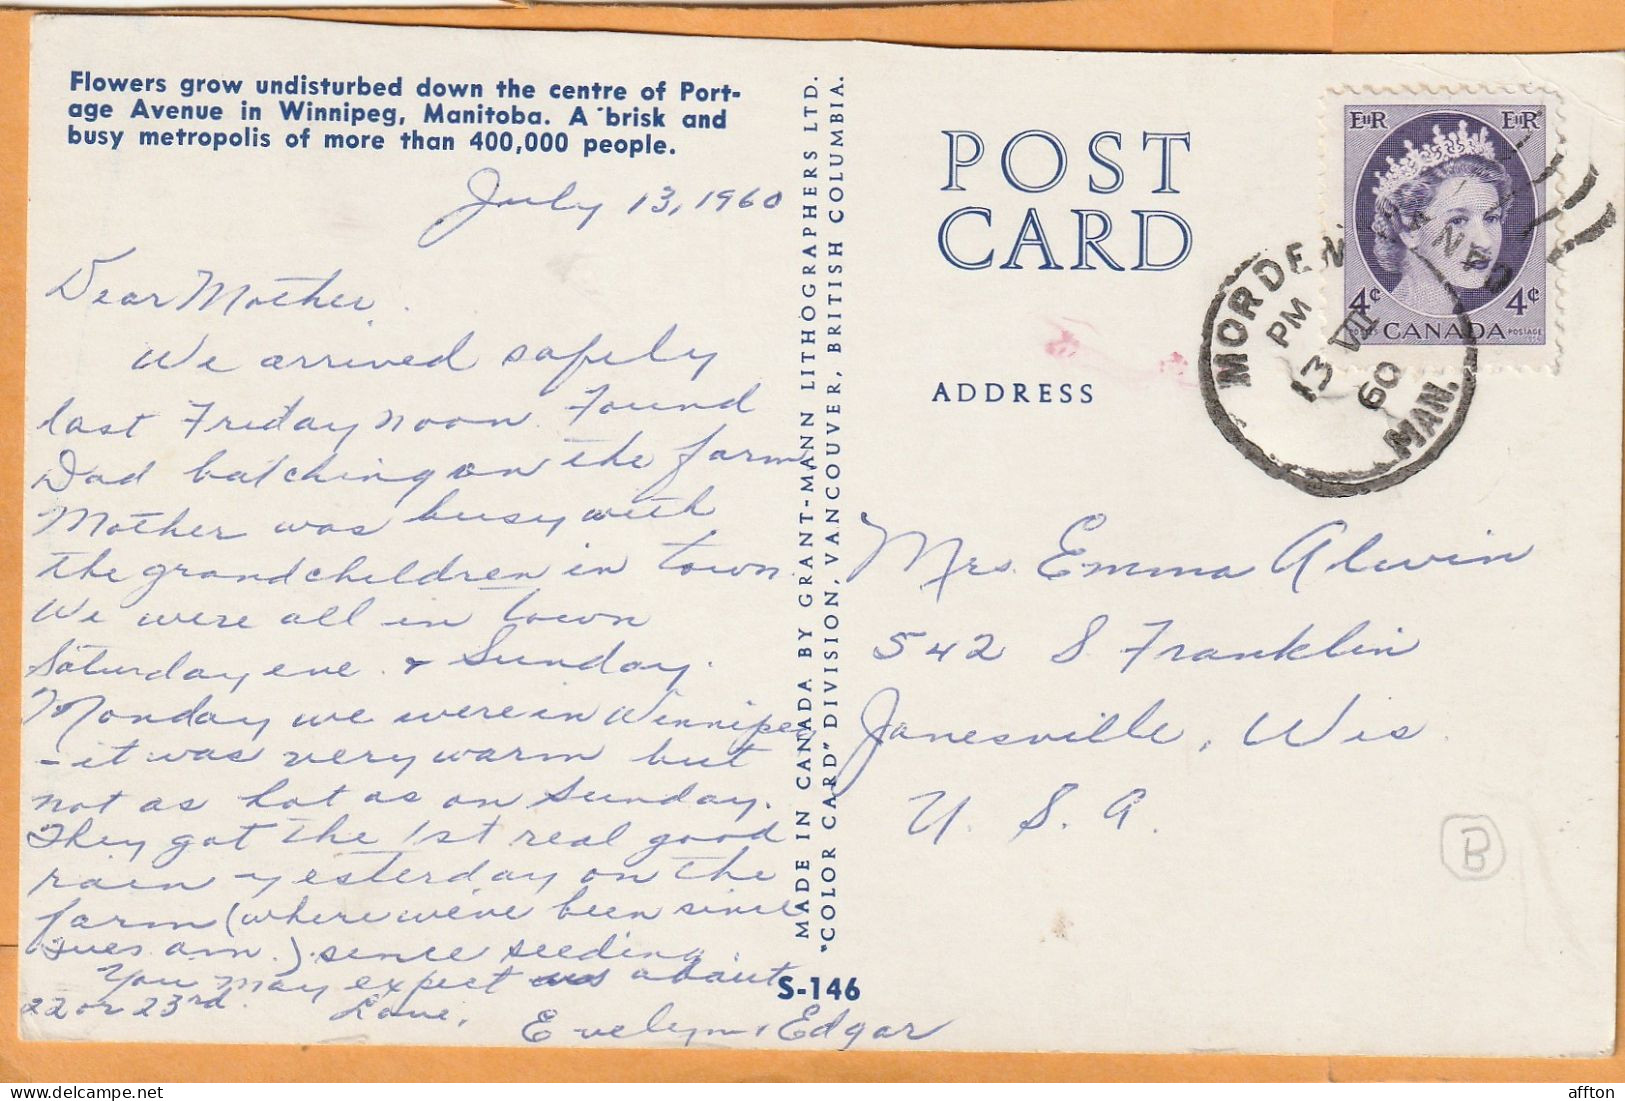 Flowers grow undisturbed down the centre of Port-
age Avenue in Winnipeg, Manitoba. A brisk and
busy metropolis of more than 400,000 people.
July 13, 1960
Dear Mother.
We arrived safely
last Friday noon. Found
Dad batching on the farm
Mother was busy with
the grandchildren in town.
We were all in town
Saturday eve. & Sunday.
Monday we were in Winnipeg
- it was very warm but
not as hot as on Sunday.
They got the 1st real good
rain yesterday on the
farm (where we've been since
Tues am.) since seeding.
You may expect us about
22 or 23rd. Love,
Evelyn & Edgar
MADE IN CANADA BY GRANT-MANN LITHOGRAPHERS LTD.
"COLOR CARD" DIVISION, VANCOUVER, BRITISH COLUMBIA.
S-146
POST
CARD
ADDRESS
EIIR EIIR
4¢ 4¢
POSTES CANADA POSTAGE
MORDEN
PM
13 VII
60
MAN.
Mrs. Emma Alwin
542 S Franklin
Janesville, Wis.
U. S. A.
B
affton